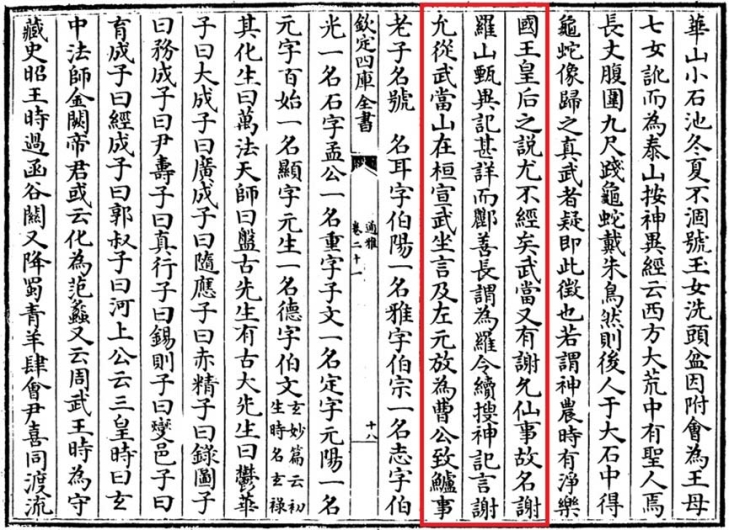 華山小石池冬夏不涸號玉女洗頭盆因附會為王母
七女訛而為泰山按神異經云西方大荒中有聖人焉
長丈腹圍九尺踐龜蛇戴朱鳥然則後人于大石中得
龜蛇像歸之真武者疑即此徵也若謂神農時有淨樂
國王皇后之説尤不經矣武當又有謝允仙事故名謝
羅山甄異記甚詳而酈善長謂為羅令續搜神記言謝
允從武當山在桓宣武坐言及左元放為曹公致鱸事
老子名號 名耳字伯陽一名雅字伯宗一名志字伯
欽定四庫全書
通雅
卷二十一
十八
光一名石字孟公一名重字子文一名定字元陽一名
元字百始一名顯字元生一名德字伯文玄妙篇云初生時名玄祿
其化生曰萬法天師曰盤古先生有古大先生曰鬱華
子曰大成子曰廣成子曰隨應子曰赤精子曰錄圖子
曰務成子曰尹壽子曰真行子曰錫則子曰變邑子曰
育成子曰經成子曰郭叔子曰河上公云三皇時曰玄
中法師金闕帝君或云化為范蠡又云周武王時為守
藏史昭王時過函谷關又降蜀青羊肆會尹喜同渡流